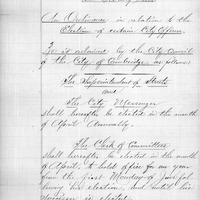 An Ordinance in relation to the
Election of certain City Officers.
Be it ordained by the City Council
of the City of Cambridge as follows:
The Superintendent of Streets
and
The City Messenger
shall hereafter be elected in the month
of April Annually.
The Clerk of Committees
shall hereafter be elected in the month
of April, to hold office for one year
from the first Monday of
his election, and until his
successor is elected.